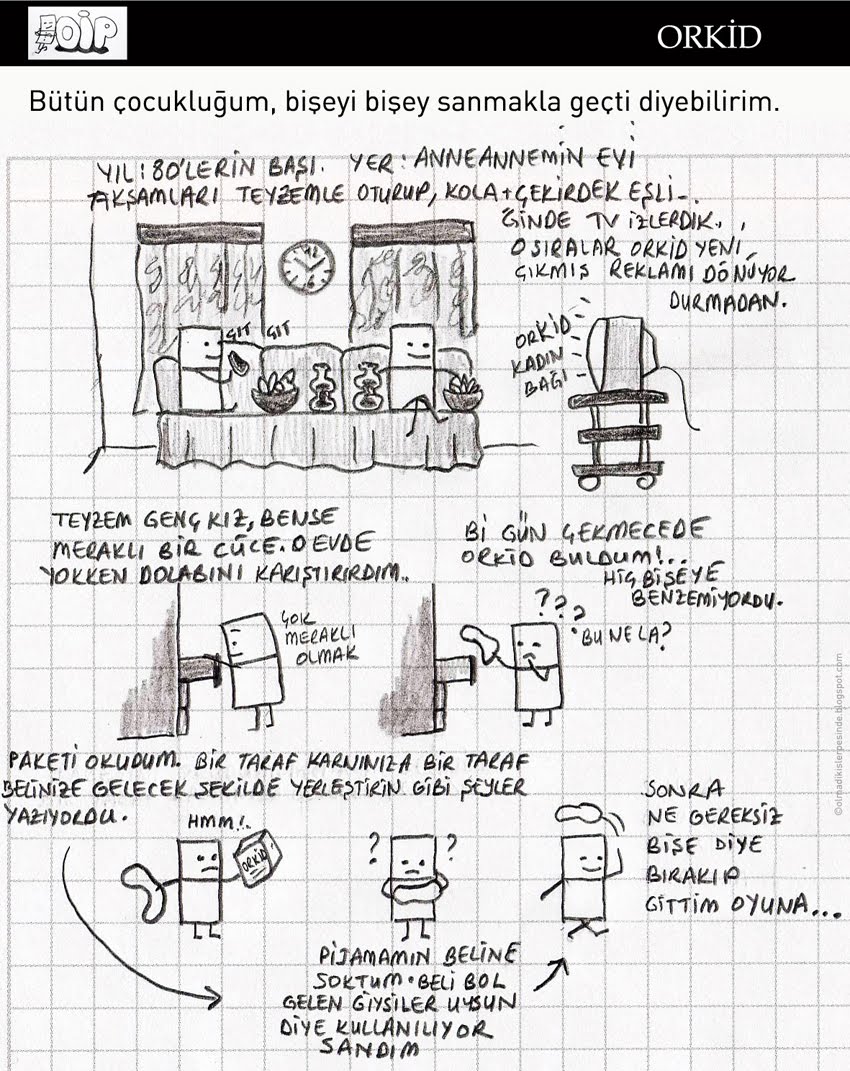 OİP
ORKİD
Bütün çocukluğum, bişeyi bişey sanmakla geçti diyebilirim.
YIL: 80'LERİN BAŞI. YER: ANNEANNEMİN EVİ
AKŞAMLARI TEYZEMLE OTURUP, KOLA+ÇEKİRDEK EŞLİ-
ĞİNDE TV İZLERDİK.
O SIRALAR ORKİD YENİ
ÇIKMIŞ REKLAMI DÖNÜYOR
DURMADAN.
ÇIT ÇIT
ORKİD
KADIN
BAĞI
TEYZEM GENÇ KIZ, BENSE
MERAKLI BİR CÜCE. O EVDE
YOKKEN DOLABINI KARIŞTIRIRDIM..
ÇOK
MERAKLI
OLMAK
Bİ GÜN ÇEKMECEDE
ORKİD BULDUM!..
HİÇ BİŞEYE
BENZEMİYORDU.
???
BU NE LA?
PAKETİ OKUDUM. BİR TARAF KARNINIZA BİR TARAF
BELİNİZE GELECEK ŞEKİLDE YERLEŞTİRİN GİBİ ŞEYLER
YAZIYORDU.
HMM!.
ORKİD
? ?
PİJAMAMIN BELİNE
SOKTUM. BELİ BOL
GELEN GİYSİLER UYSUN
DİYE KULLANILIYOR
SANDIM
SONRA
NE GEREKSİZ
BİŞE DİYE
BIRAKIP
GİTTİM OYUNA...
©olmadikislerpesinde.blogspot.com